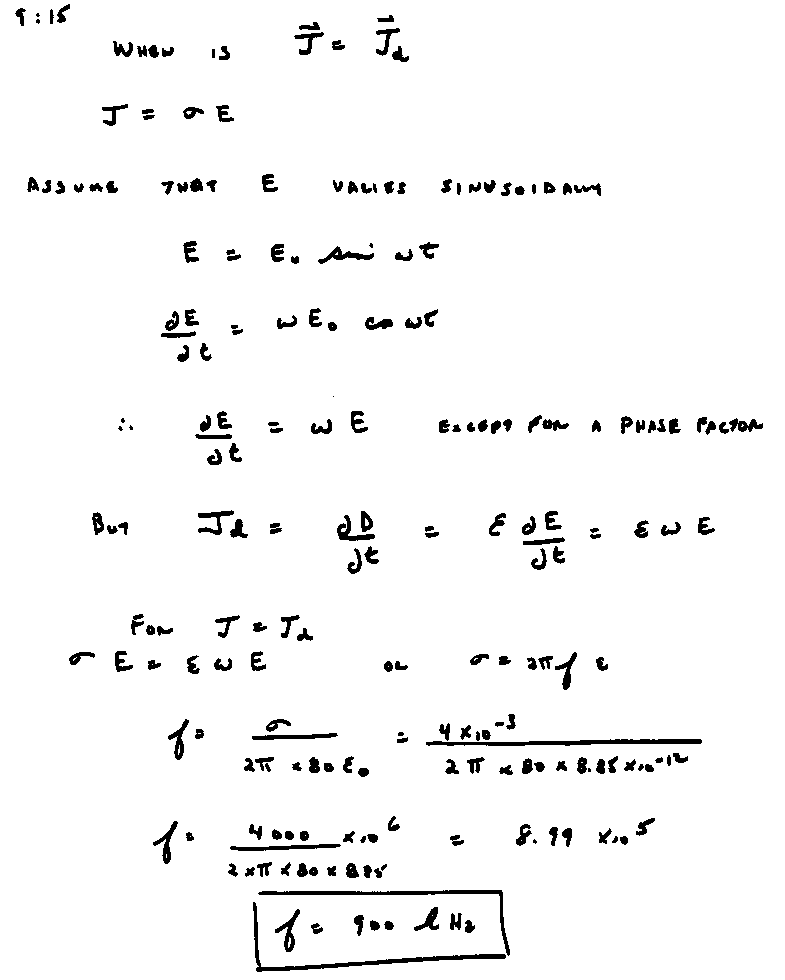 9:15
WHEN IS J⃗ = J⃗_d
J = σ E
ASSUME THAT E VARIES SINUSOIDALLY
E = E₀ sin ωt
∂E/∂t = ω E₀ cos ωt
∴ ∂E/∂t = ω E EXCEPT FOR A PHASE FACTOR
BUT J_d = ∂D/∂t = ε ∂E/∂t = ε ω E
FOR J = J_d
σ E = ε ω E OR σ = 2π f ε
f = σ / (2π × 80 ε₀) = 4 × 10⁻³ / (2 π × 80 × 8.85 × 10⁻¹²)
f = 4000 / (2 × π × 80 × 885) × 10⁶ = 8.99 × 10⁵
f = 900 kHz